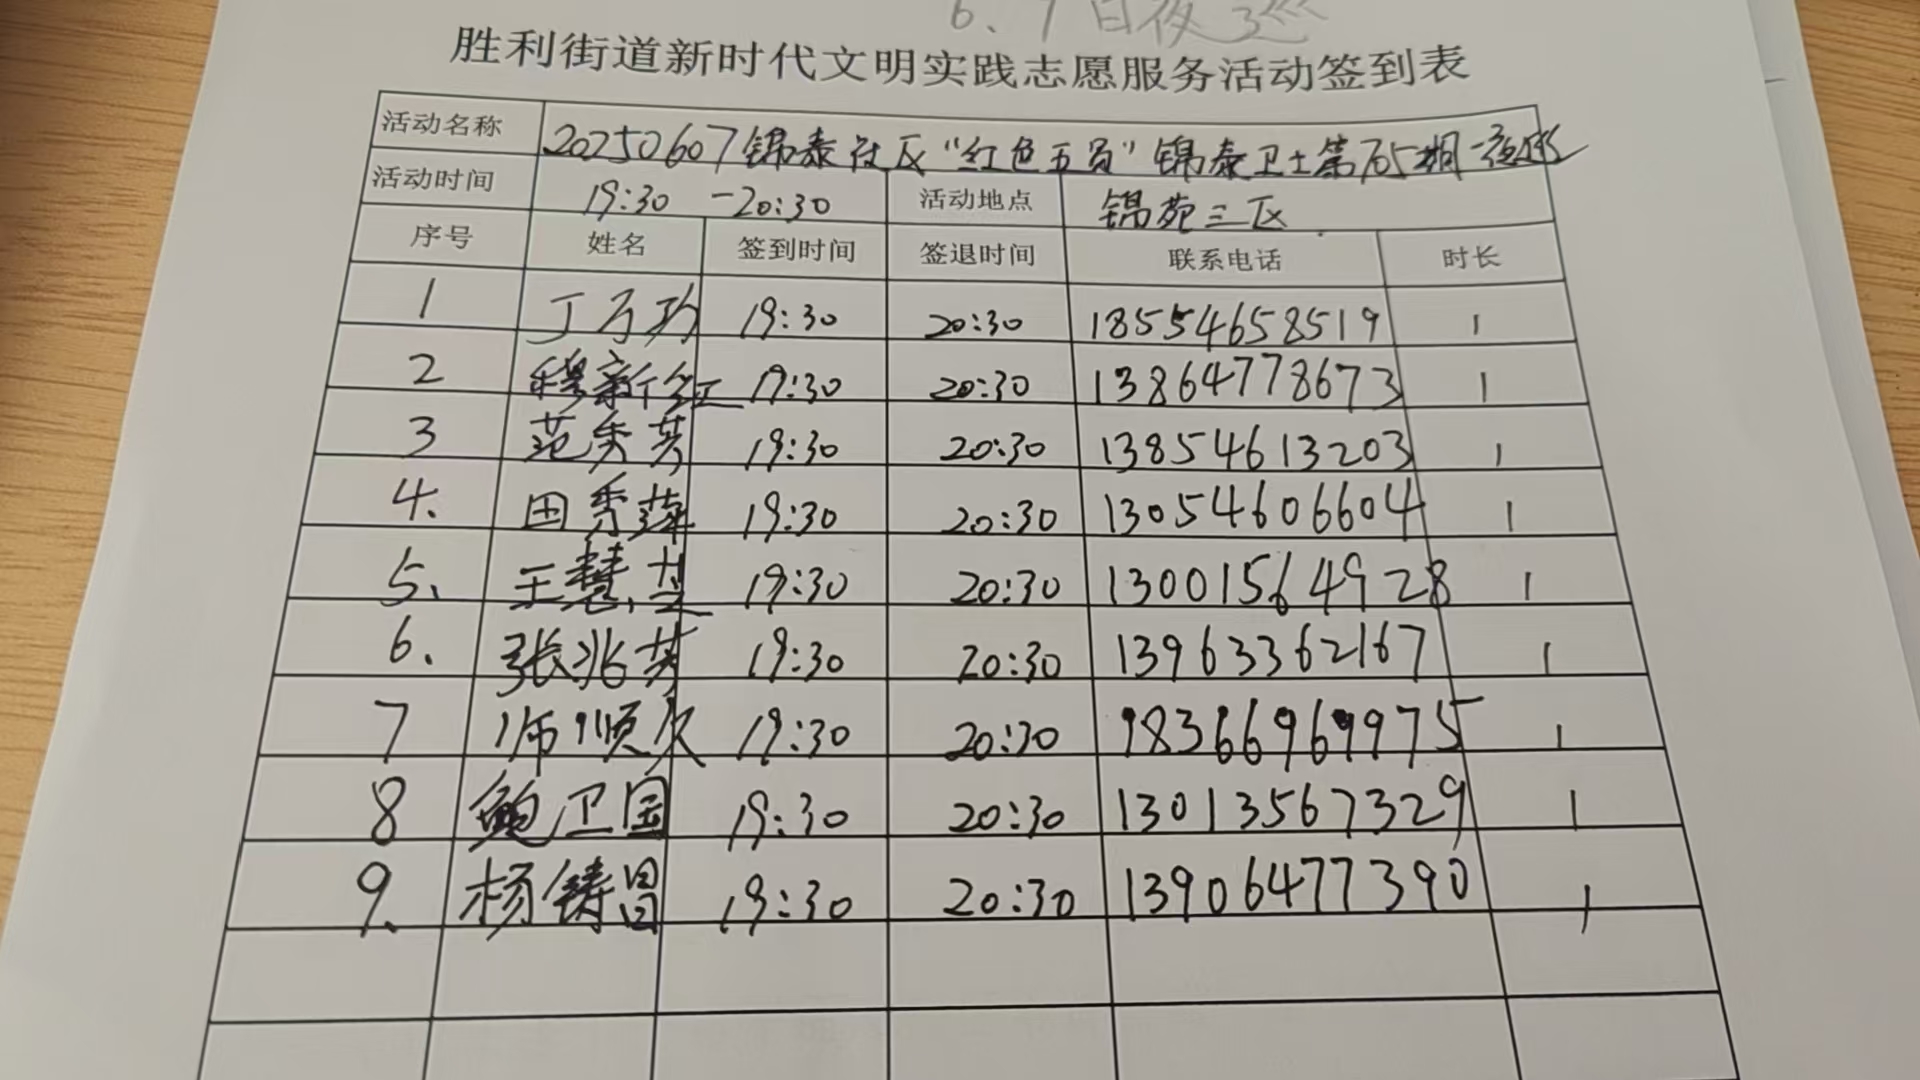 6.7日夜巡
胜利街道新时代文明实践志愿服务活动签到表
活动名称 20250607锦泰社区“红色五员”锦泰卫士第705期-夜巡
活动时间 19:30 -20:30 活动地点 锦苑三区
序号 姓名 签到时间 签退时间 联系电话 时长
1 丁万玲 19:30 20:30 18554658519 1
2 穆新红 19:30 20:30 13864778673 1
3 范秀芳 19:30 20:30 13854613203 1
4. 田秀萍 19:30 20:30 13054606604 1
5. 王慧芝 19:30 20:30 13001564928 1
6. 张兆芬 19:30 20:30 13963362167 1
7 师顺久 19:30 20:30 18366969975 1
8 鲍卫国 19:30 20:30 13013567329 1
9. 杨铸昌 19:30 20:30 13906477390 1